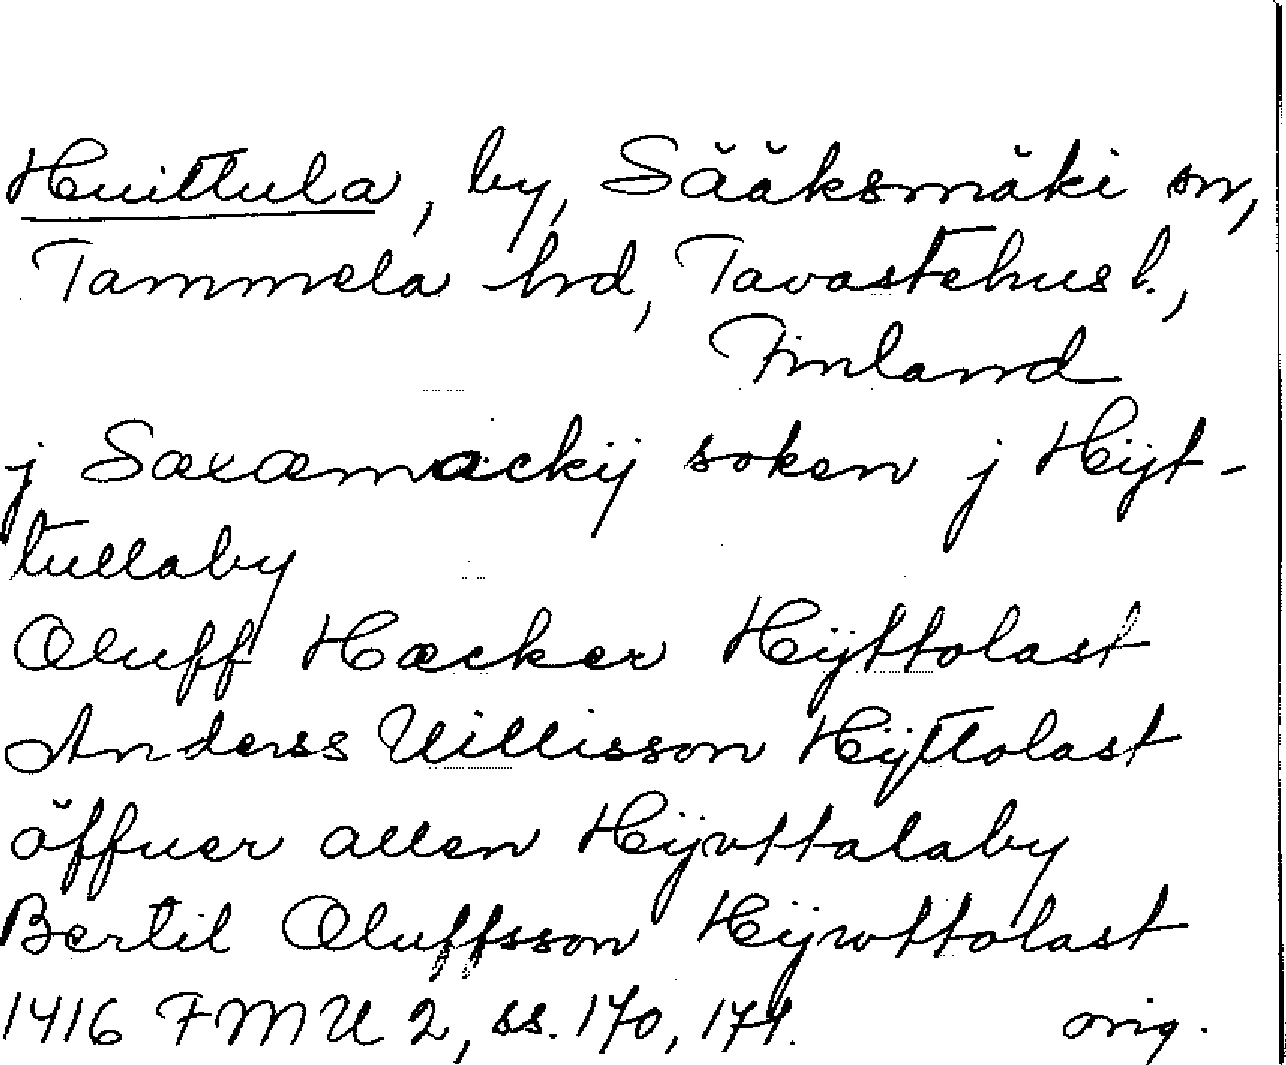 Huittula, by, Sääksmäki sn,
Tammela hrd, Tavastehus l.,
Finland
j Saxamackij soken j Hijt-
tullaby
Oluff Hacker Hÿttolast
Anderss Uillisson Hÿttolast
öffuer allen Hÿvttalaby
Bertil Oluffsson Hÿwttolast
1416 FMU 2, ss. 170, 171. orig.